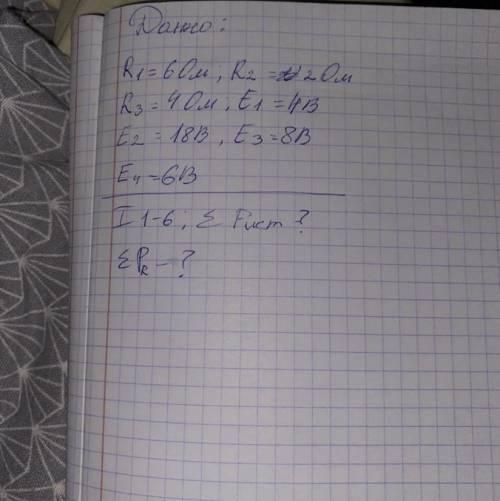 Дано:
R1=6Ом, R2=2Ом
R3=4Ом, E1=4В
E2=18В, E3=8В
E4=6В
I1-6; Σ Pист?
ΣPR-?